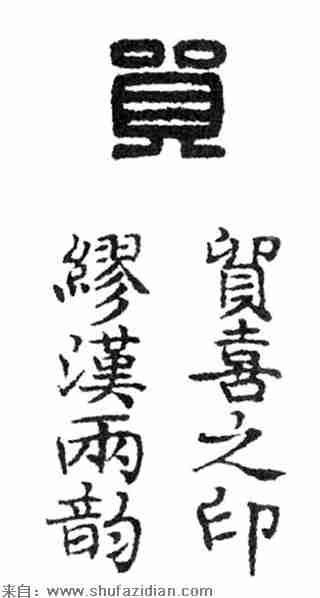 貿
貿喜之印
繆漢兩韵
来自：www.shufazidian.com